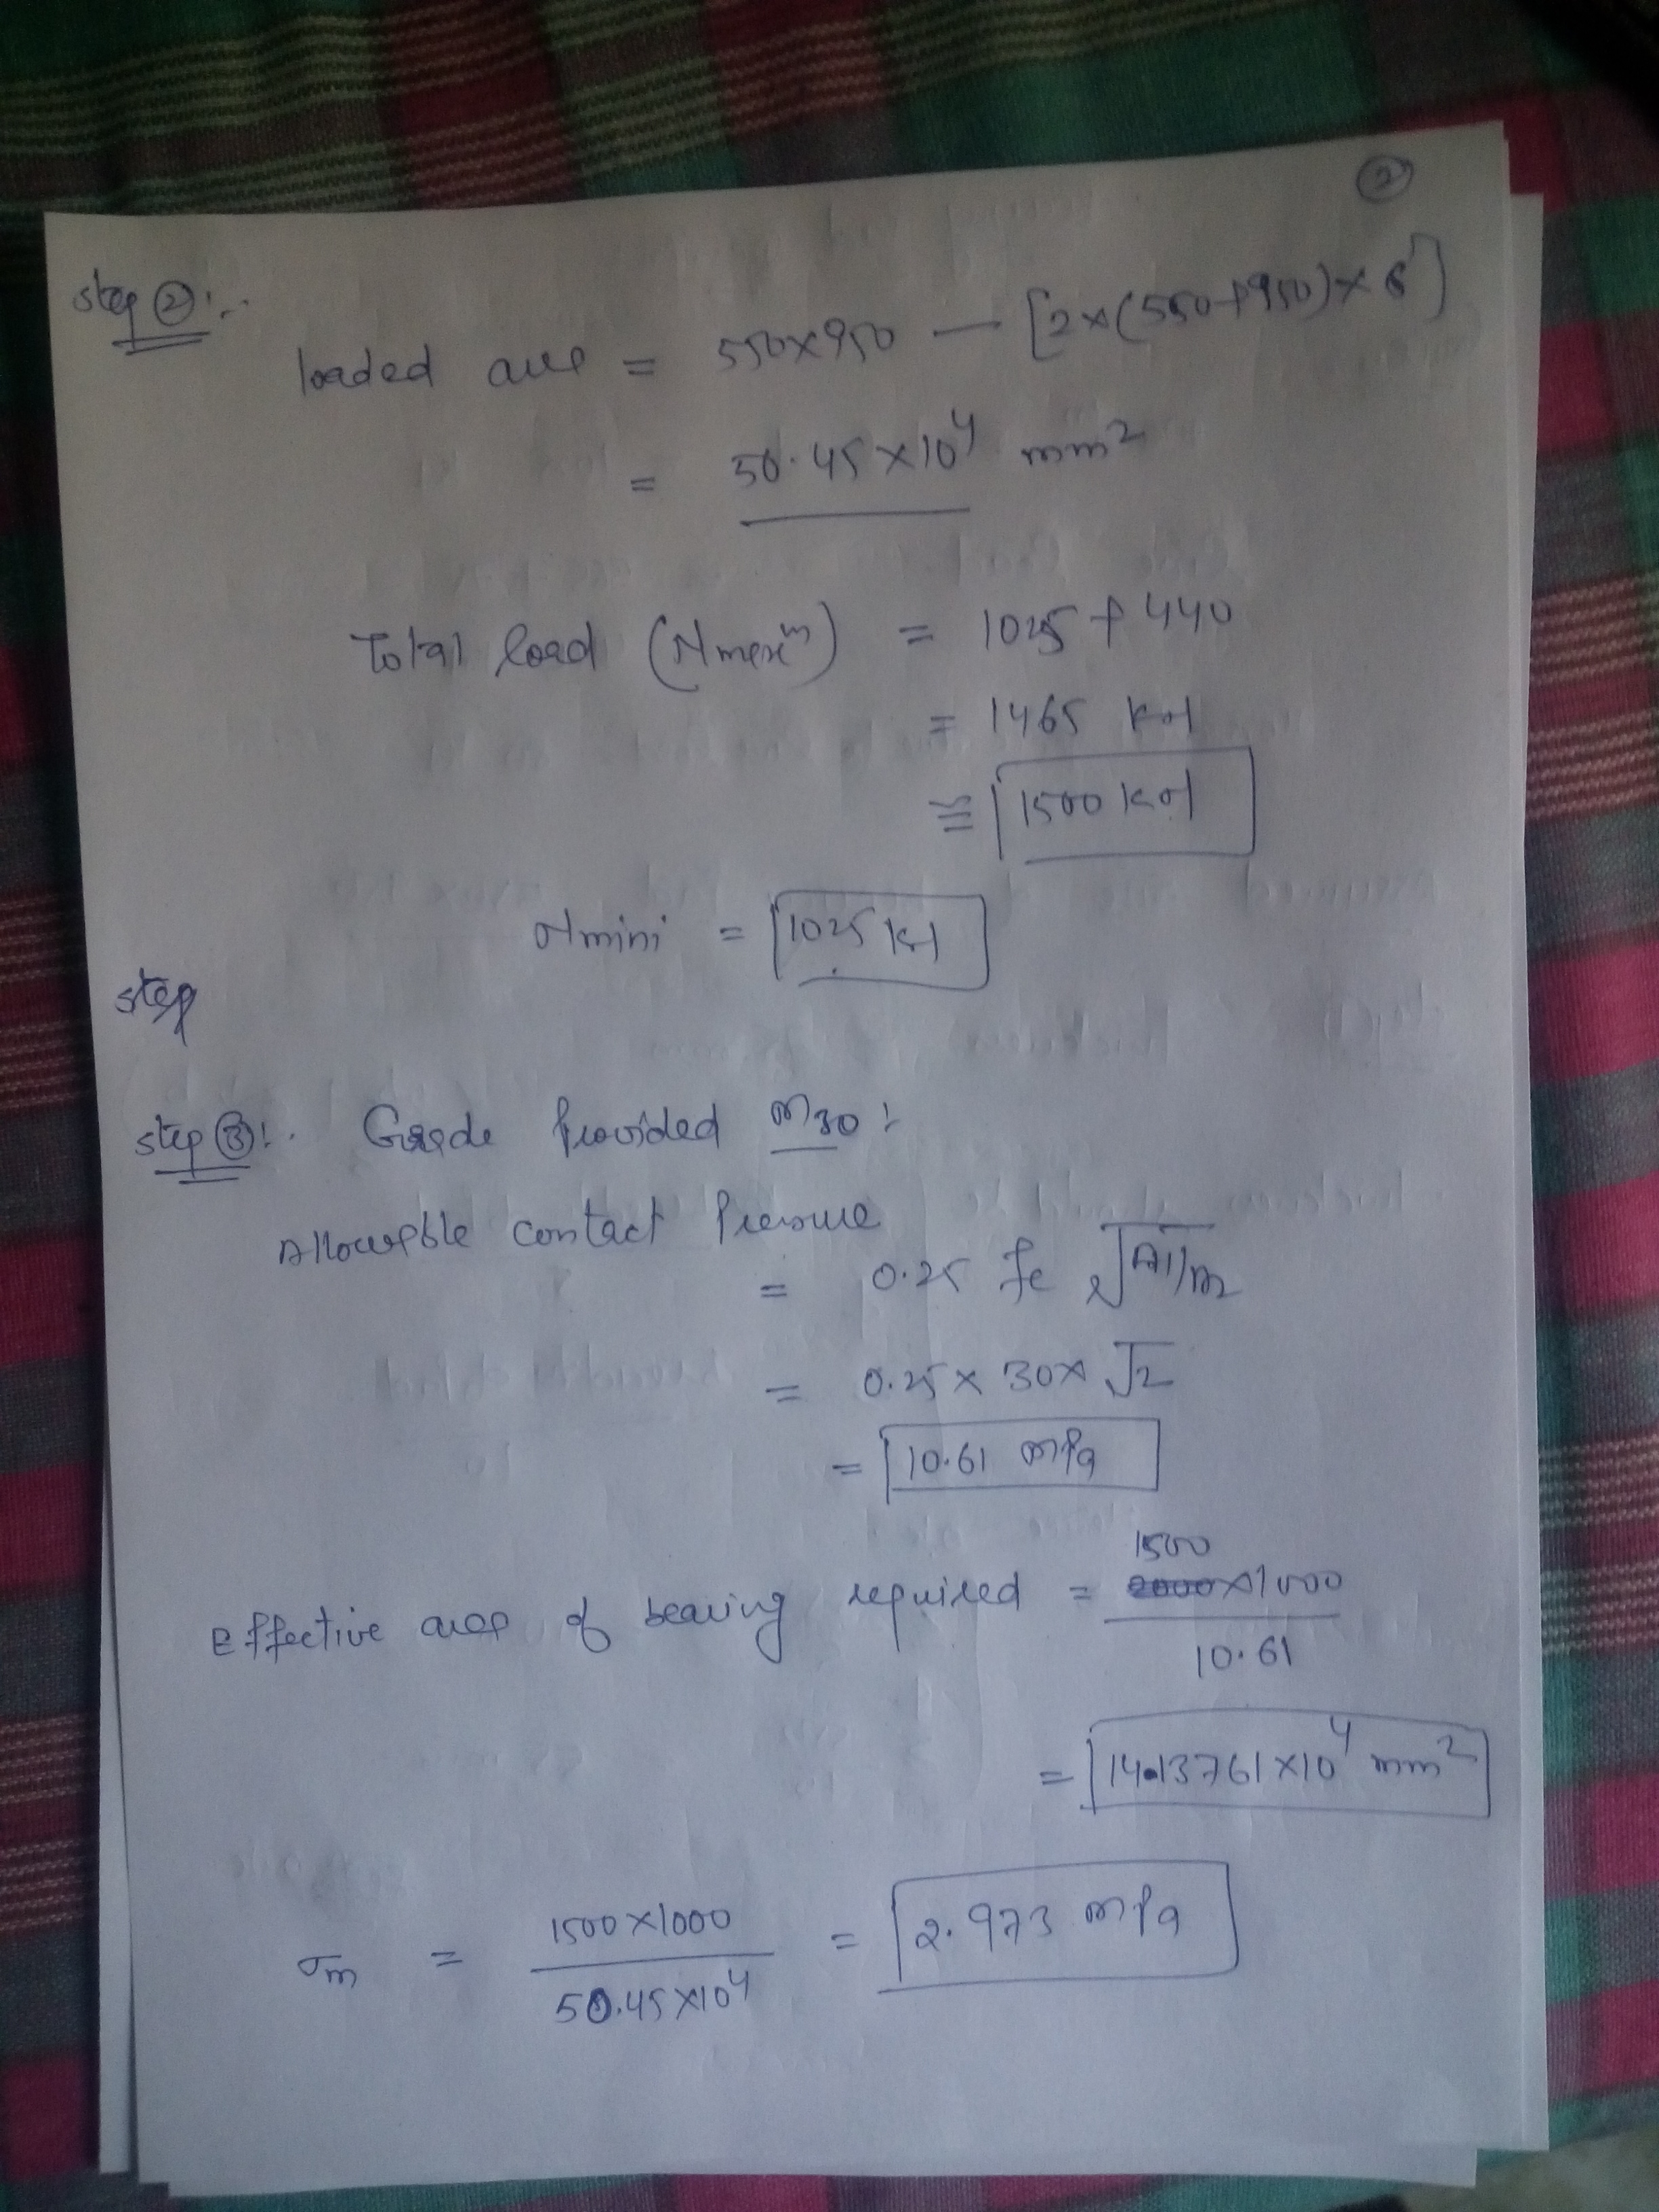 ②
step ②:-
loaded area = 550×950 — [2×(550+950)×6]
= 50.45×10⁴ mm²
Total load (Nmaxᵐ) = 1025 + 440
= 1465 kN
≅ 1500 kN
Nmini = 1025 kN
step
step ③:. Grade Provided M30:
Allowable contact Pressure
= 0.25 fc √A1/A2
= 0.25 × 30 × √2
= 10.61 MPa
1500
Effective area of bearing required = 2000×1000
10.61
= 14.13761×10⁴ mm²
σm = 1500×1000 / 50.45×10⁴ = 2.973 MPa